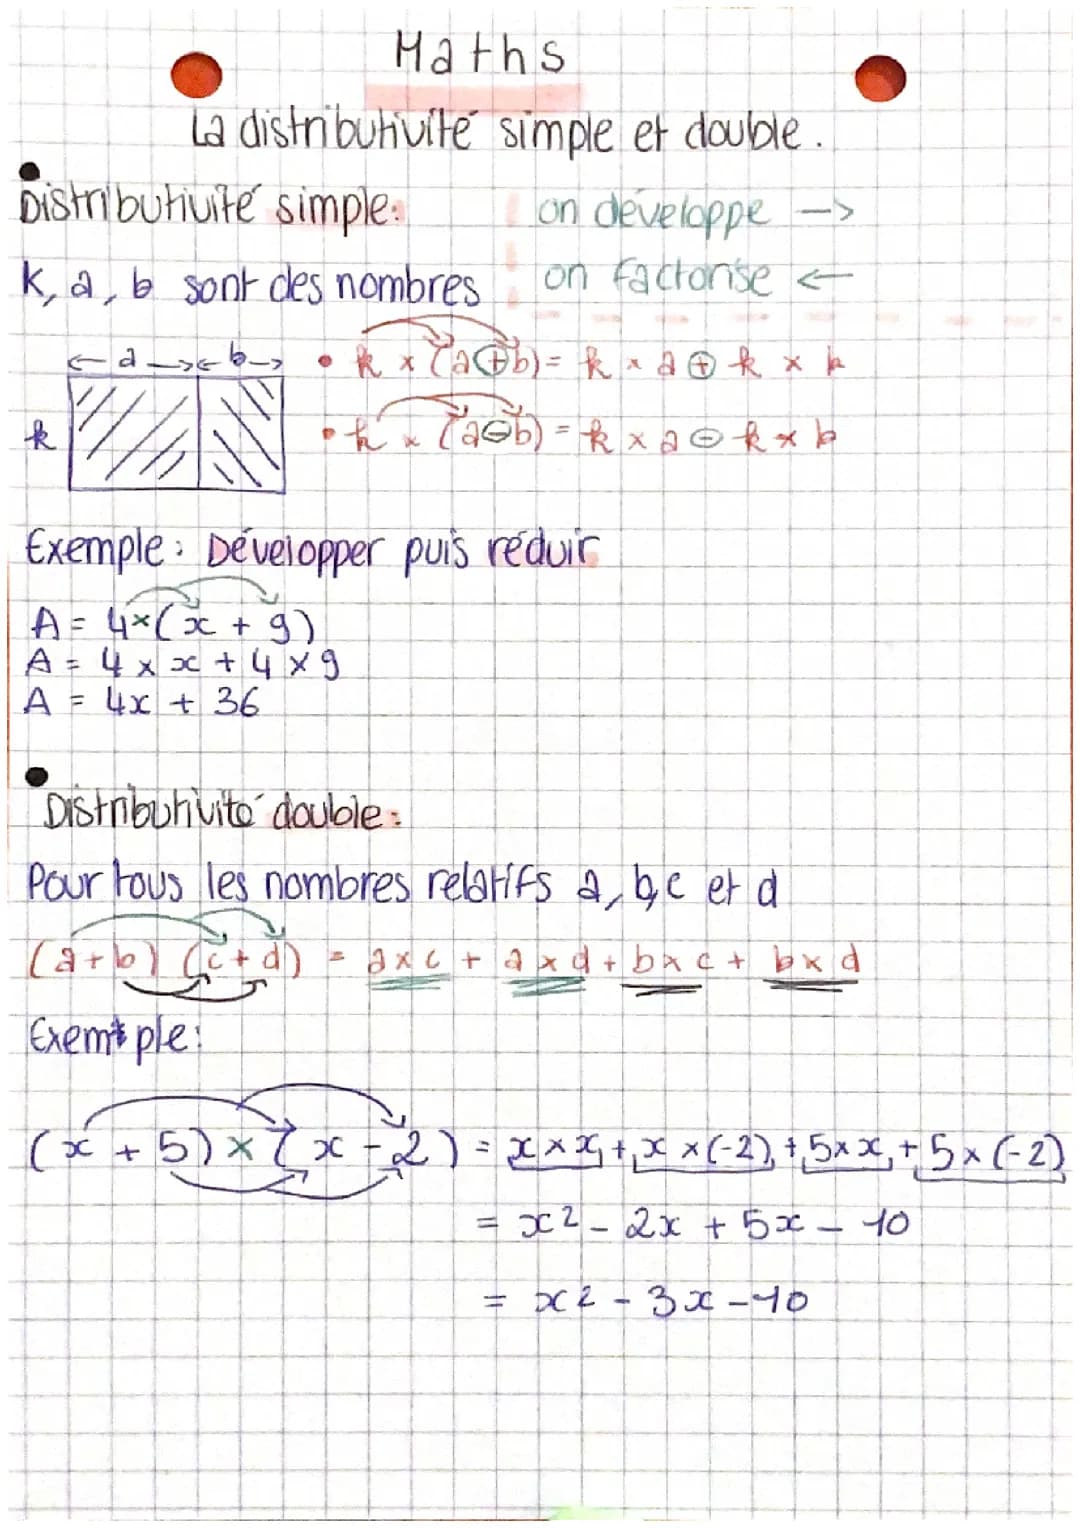 Maths
La distributivité simple et double.
Distributivité simple:
on développe -->
K, a, b sont des nombres
on factorise <--
<- a -> <- b ->
k
• k × (a ⊕ b) = k × a ⊕ k × b
• k × (a ⊖ b) = k × a ⊖ k × b
Exemple: Développer puis réduir
A = 4×(x + 9)
A = 4 × x + 4 × 9
A = 4x + 36
Distributivité double:
Pour tous les nombres relatifs a, b, c et d
(a+b) (c+d) = a×c + a×d + b×c + b×d
Exemple:
(x + 5) × (x - 2) = x × x + x × (-2) + 5×x + 5×(-2)
= x² - 2x + 5x - 10
= x² - 3x - 10